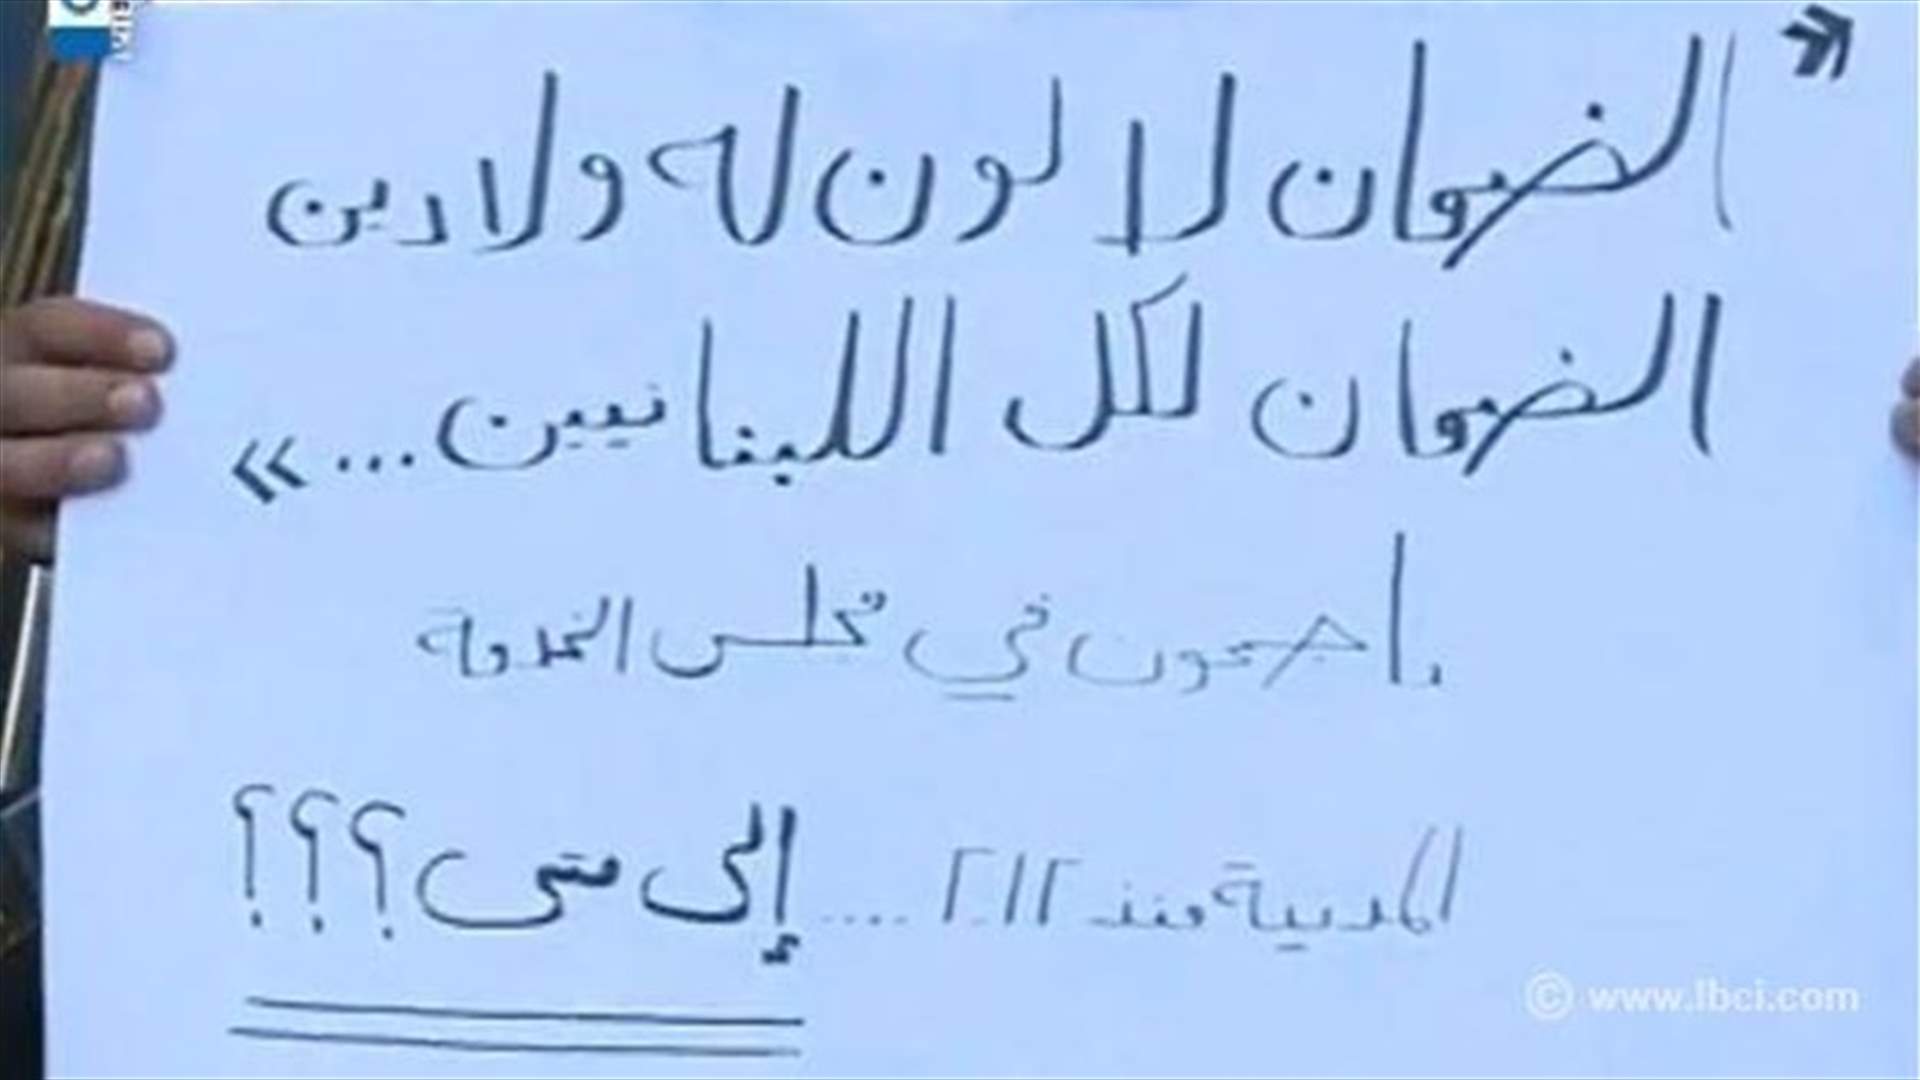 « الضمان لا لون له ولا دين
الضمان لكل اللبنانيين... »
ناجحون في مجلس الخدمة
المدنية منذ ٢٠١٢ .... إلى متى؟؟؟
© www.lbci.com